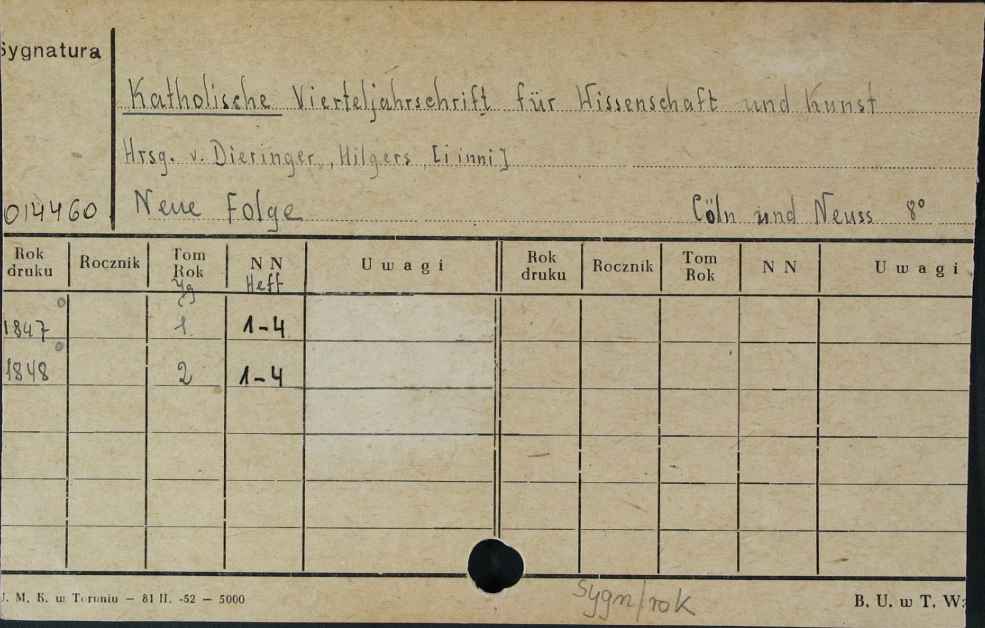 Sygnatura
Katholische Vierteljahrschrift für Wissenschaft und Kunst
Hrsg. v. Dieringer, Hilgers [i inni]
014460 Neue Folge Cöln und Neuss 8°
Rok druku Rocznik Tom Rok NN Uwagi Rok druku Rocznik Tom Rok NN Uwagi
Jg Heft
1847 1 1-4
1848 2 1-4
J. M. K. w Toruniu — 81 II. -52 — 5000 B. U. w T. W:
Sygn/rok